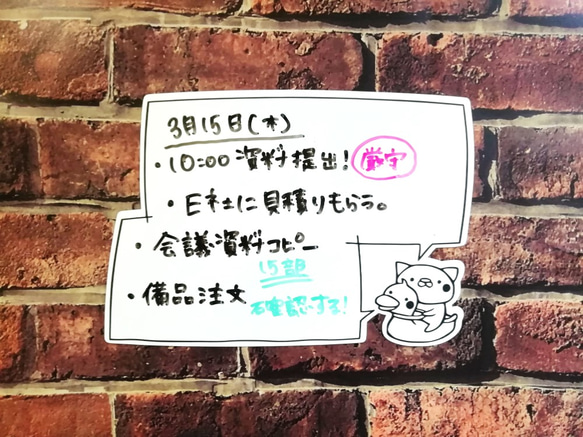 3月15日(木)
・10:00 資料提出! 厳守
・E社に見積りもらう。
・会議資料コピー
15部
・備品注文
確認する!